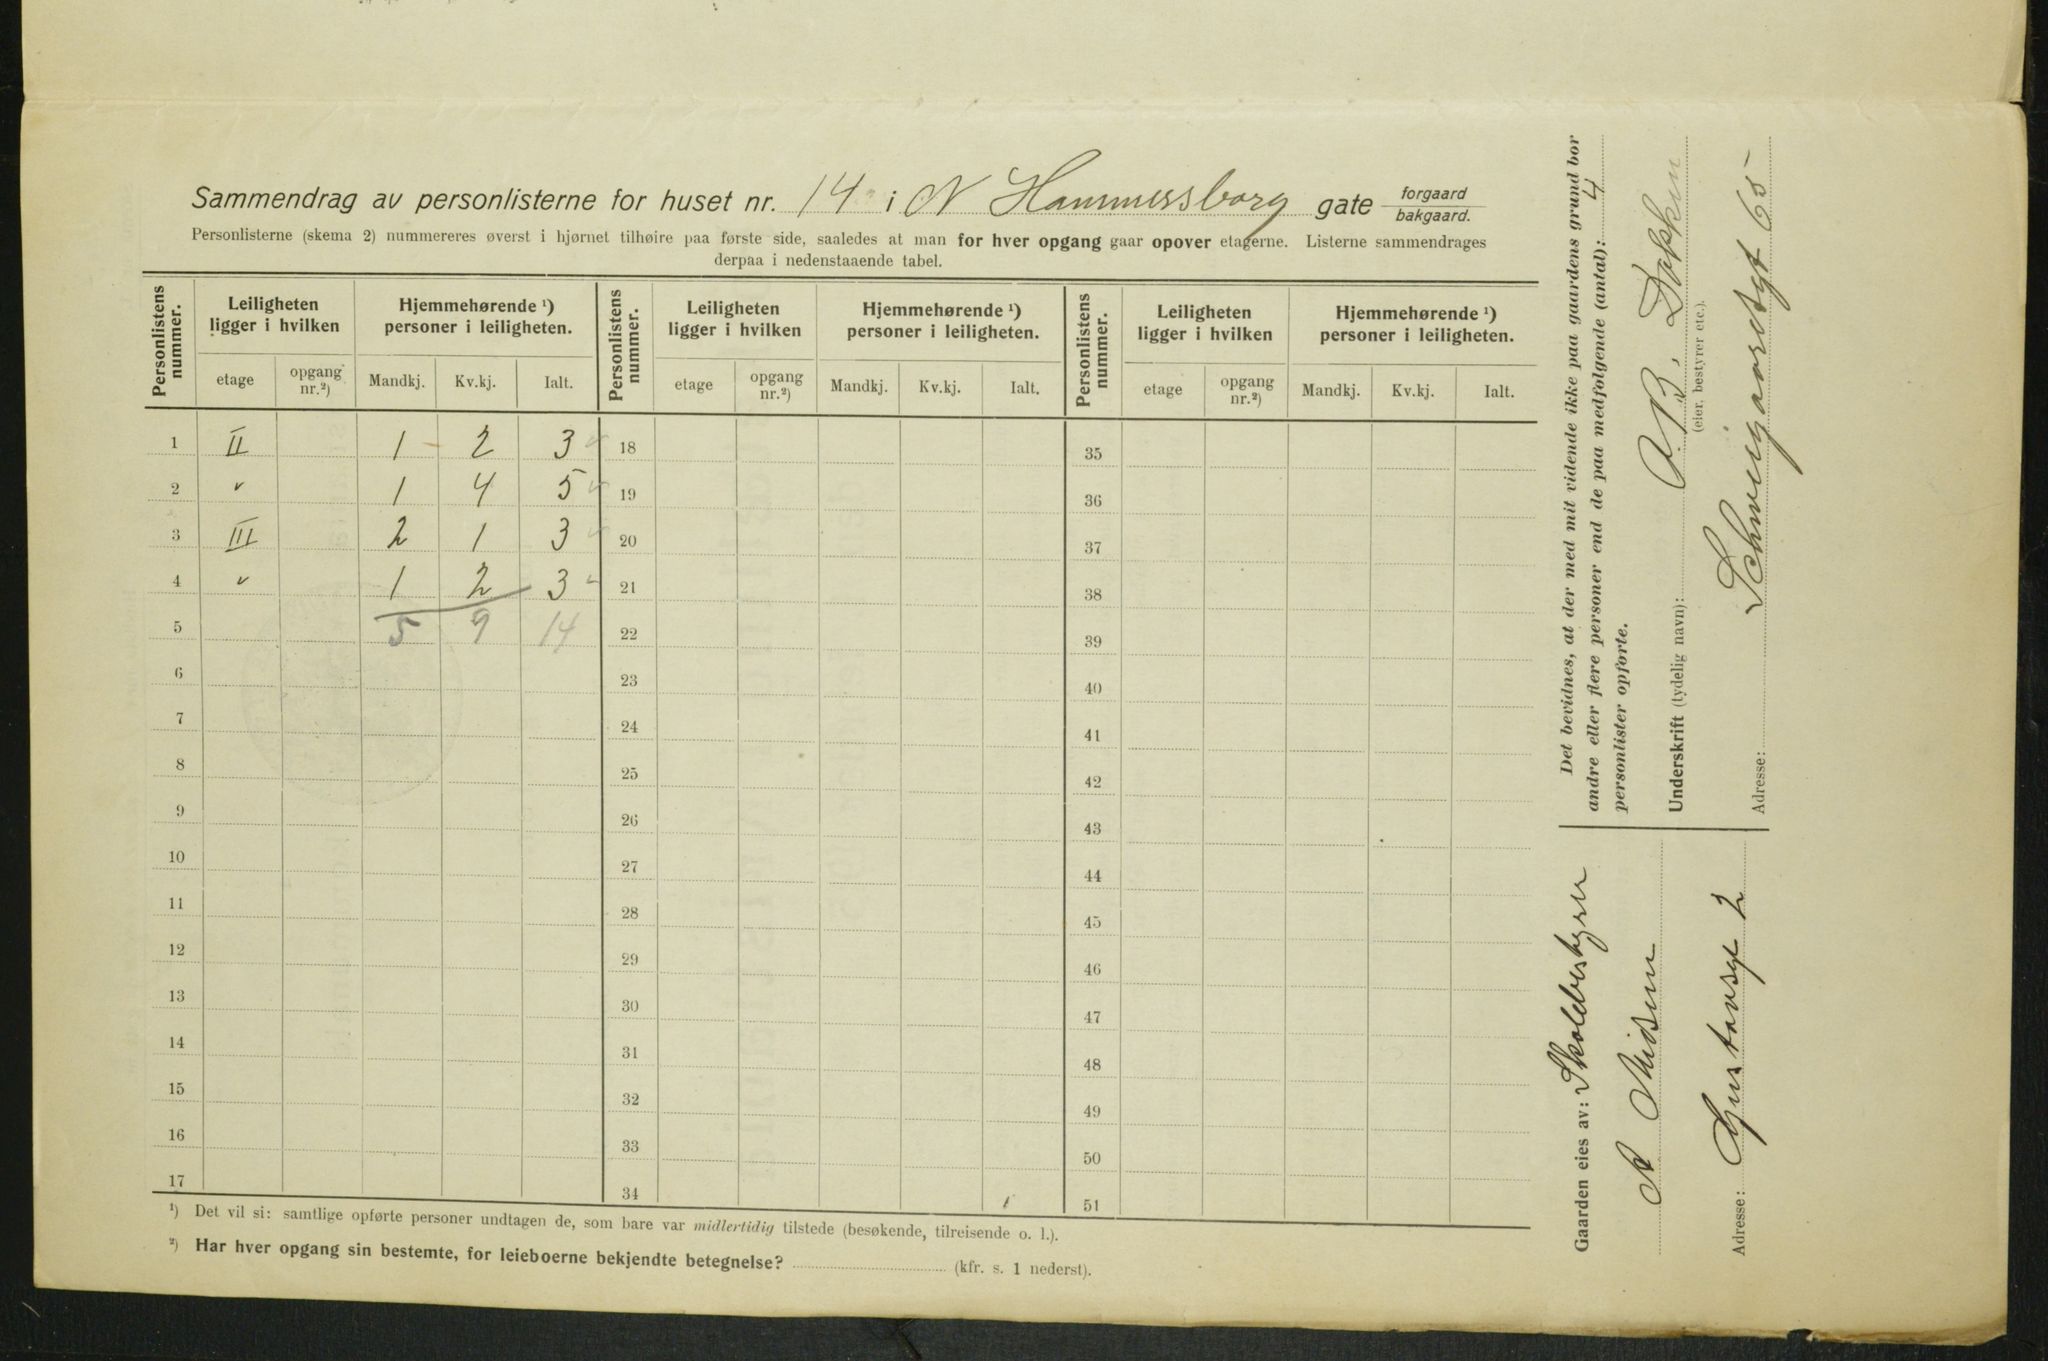 Sammendrag av personlisterne for huset nr. 14 i N Hammersborg gate forgaard bakgaard.
Personlisterne (skema 2) nummereres øverst i hjørnet tilhøire paa første side, saaledes at man for hver opgang gaar opover etagerne. Listerne sammendrages
derpaa i nedenstaaende tabel.
Personlistens nummer. Leiligheten ligger i hvilken Hjemmehørende ¹) personer i leiligheten. Personlistens nummer. Leiligheten ligger i hvilken Hjemmehørende ¹) personer i leiligheten. Personlistens nummer. Leiligheten ligger i hvilken Hjemmehørende ¹) personer i leiligheten.
etage opgang nr.²) Mandkj. Kv.kj. Ialt. etage opgang nr.²) Mandkj. Kv.kj. Ialt. etage opgang nr.²) Mandkj. Kv.kj. Ialt.
1 II 1 2 3 18 35
2 " 1 4 5 19 36
3 III 2 1 3 20 37
4 " 1 2 3 21 38
5 5 9 14 22 39
6 23 40
7 24 41
8 25 42
9 26 43
10 27 44
11 28 45
12 29 46
13 30 47
14 31 48
15 32 49
16 33 50
17 34 51
¹) Det vil si: samtlige opførte personer undtagen de, som bare var midlertidig tilstede (besøkende, tilreisende o. l.).
²) Har hver opgang sin bestemte, for leieboerne bekjendte betegnelse? (kfr. s. 1 nederst).
Det bevidnes, at der med mit vidende ikke paa gaardens grund bor
andre eller flere personer end de paa medfølgende (antal): 4
personlister opførte.
Underskrift (tydelig navn): A. B. Dokken
(eier, bestyrer etc.).
Adresse: Schweigaardsgt 65
Gaarden eies av: Skolebestyrer
A
Adresse: Gustavsgt 2